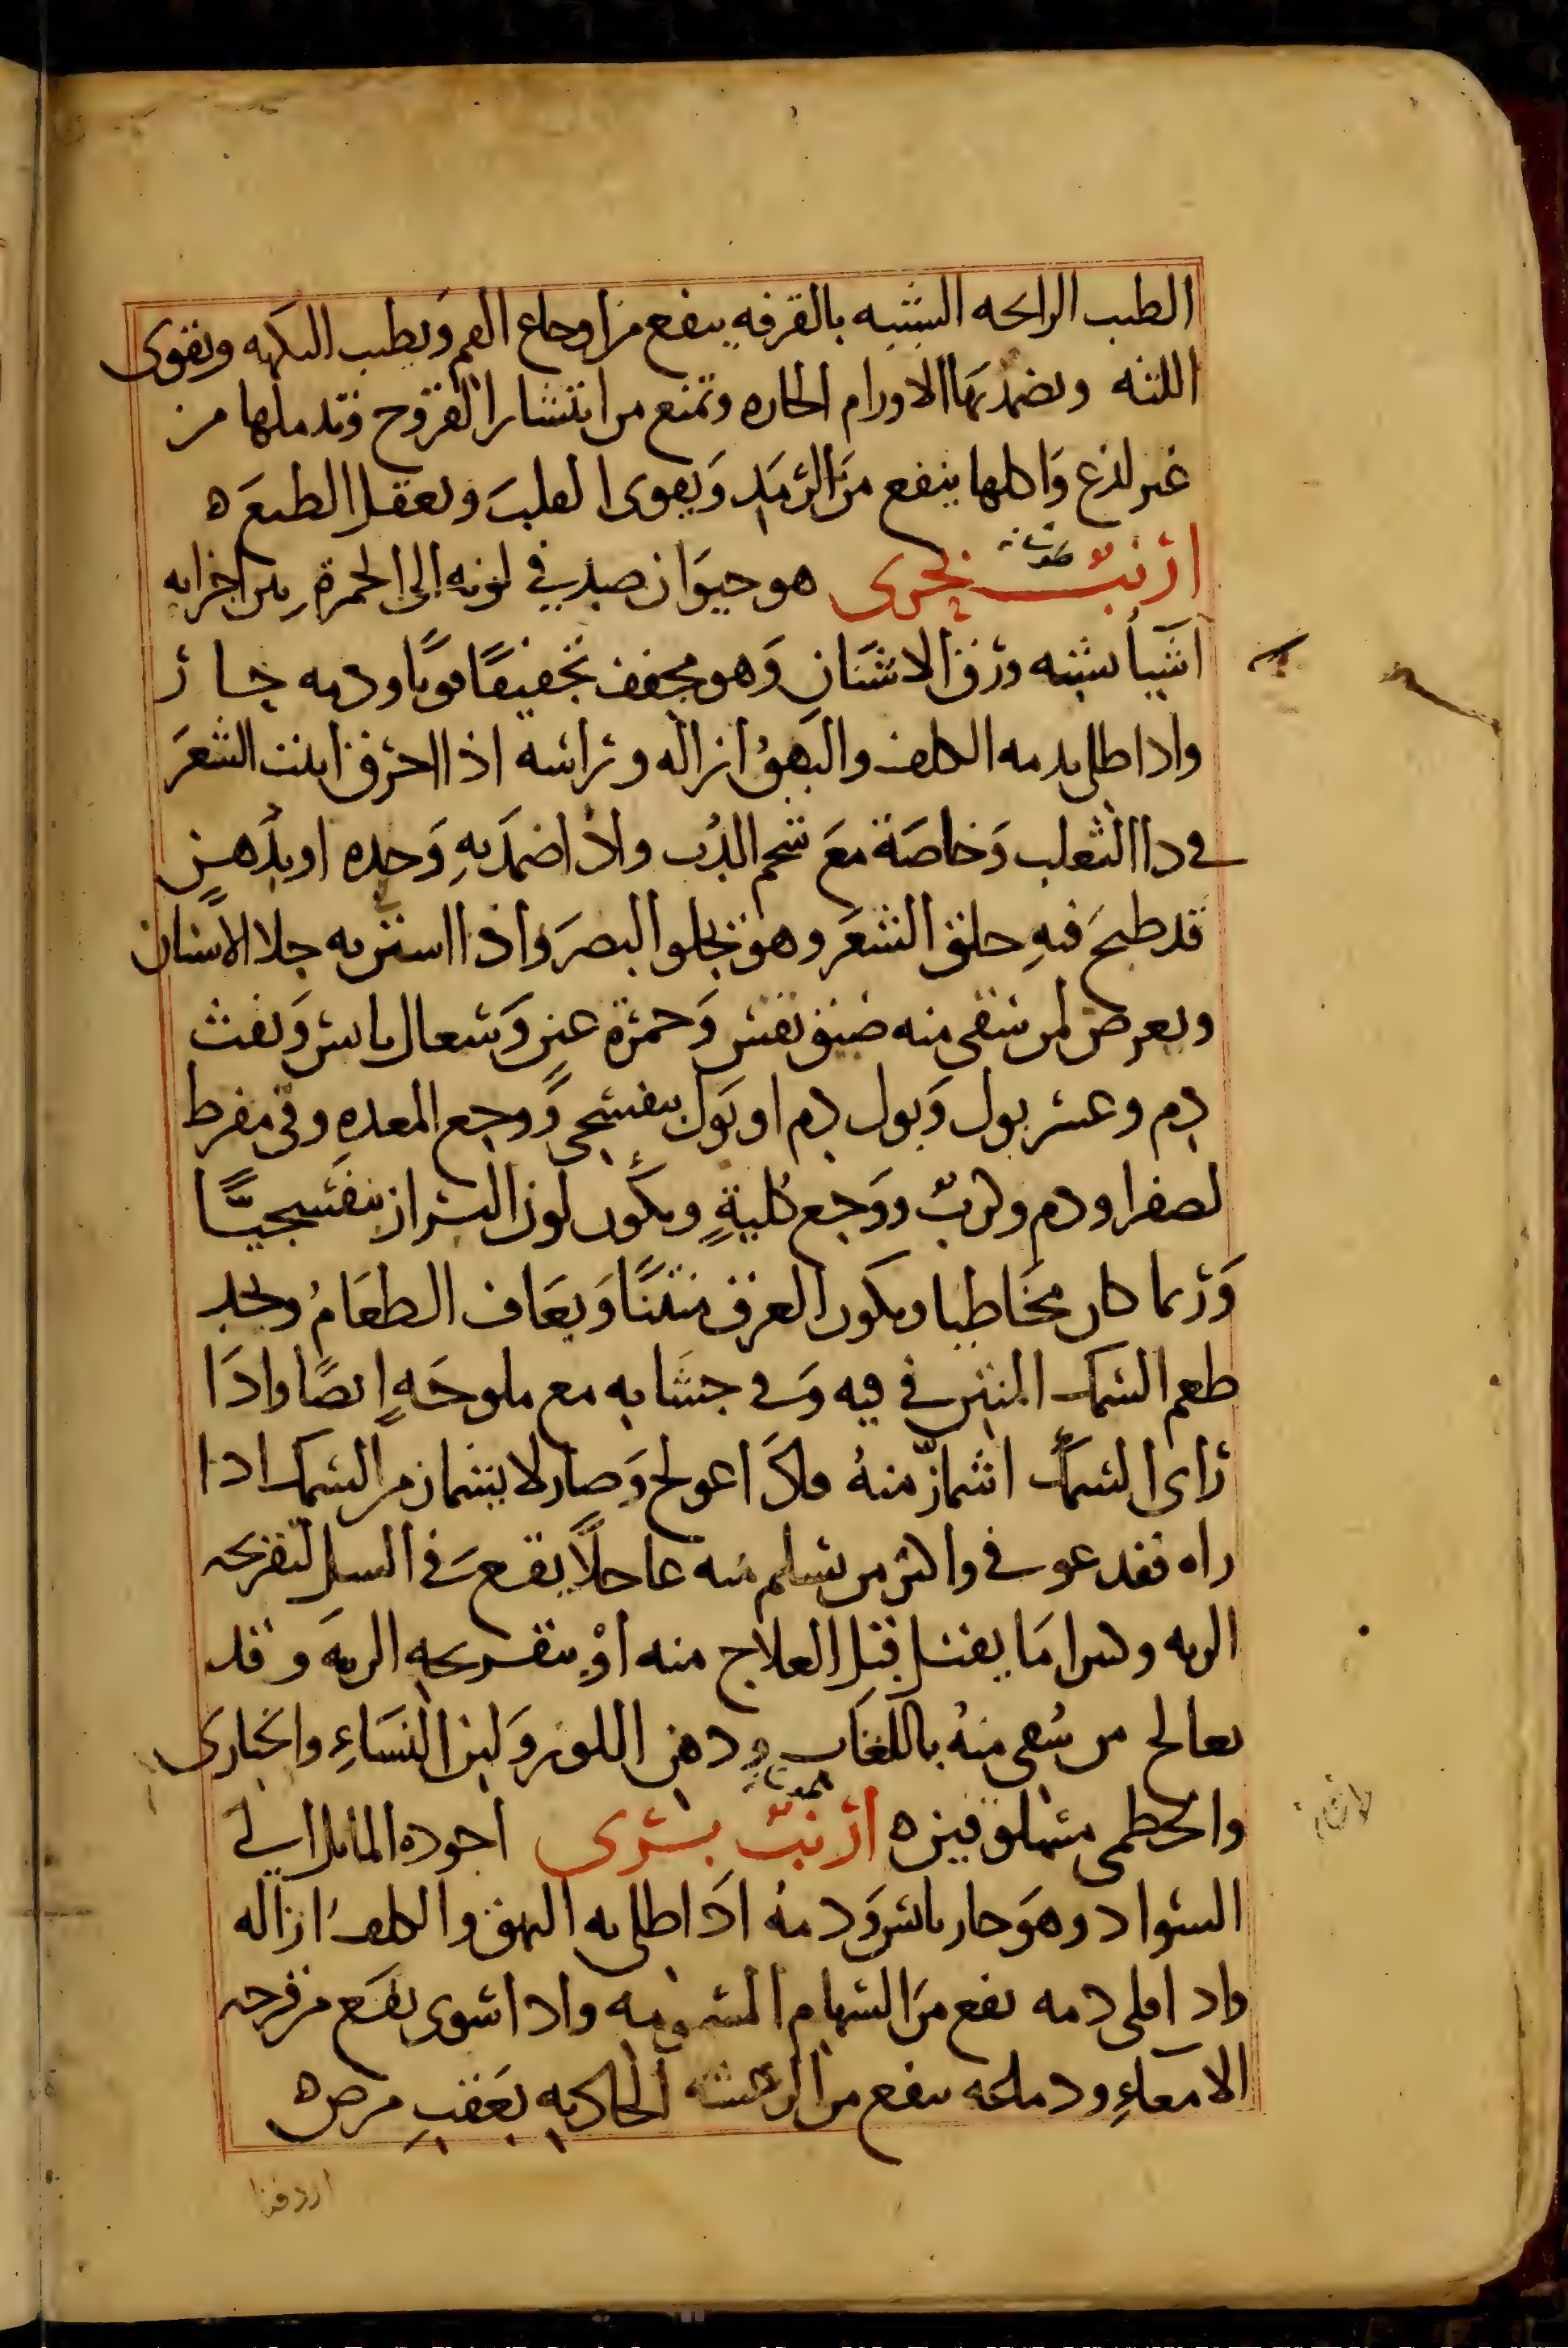 الطيب الرايحه الشبيه بالقرفه ينفع من اوجاع الفم ويطيب النكهه ويقوى
اللثه ويضمد بها الاورام الحاره وتمنع من انتشار القروح وتدملها من
غير لذع واكلها ينفع من الرمد ويقوى القلب ويعقل الطبع ه
ارنب بحرى هو حيوان صدفي لونه الى الحمرة بين اجزايه
اشيا يشبه ورق الاشنان وهو مجفف تجفيفا قويا ودمه حار
واذا طلى بدمه الكلف والبهق ازاله وراسه اذا احرق انبت الشعر
في دا الثعلب وخاصة مع شحم الدب واذا ضمد به وحده او بدهن
قد طبخ فيه حلق الشعر وهو يجلو البصر واذا استن به جلا الاسنان
ويعرض لمن سقى منه ضيق نفس وحمرة عين وسعال يابس ونفث
دم وعسر بول وبول دم او بول بنفسجى ووجع المعده وقى مفرط
لصفرا ودم وكرب ووجع كلية ويكون لون البراز بنفسجيا
وربما كان مخاطيا ويكون العرق منتنا ويعاف الطعام ويجد
طعم السمك المنتن في فيه وفى جشايه مع ملوحة ايضا واذا
راى السمك اشماز منه فاذا عولج وصار لا يشماز من السمك اذا
راه فقد عوفى واكثر من يسلم منه عاجلا يقع فى السل لتقريحه
الريه وكثيرا ما يقتل قبل العلاج منه او بتقريحه الريه وقد
يعالج من سقى منه باللعاب ودهن اللوز ولبن النساء والخبازى
والخطمى مسلوقين ه ارنب برى اجوده المايل الى
السواد وهو حار يابس ودمه اذا طلى به البهق والكلف ازاله
واذا قلى دمه نفع من السهام المسمومه واذا شوى نفع من قرحه
الامعاء ودماغه ينفع من الرعشه الحادثه بعقب مرض ه